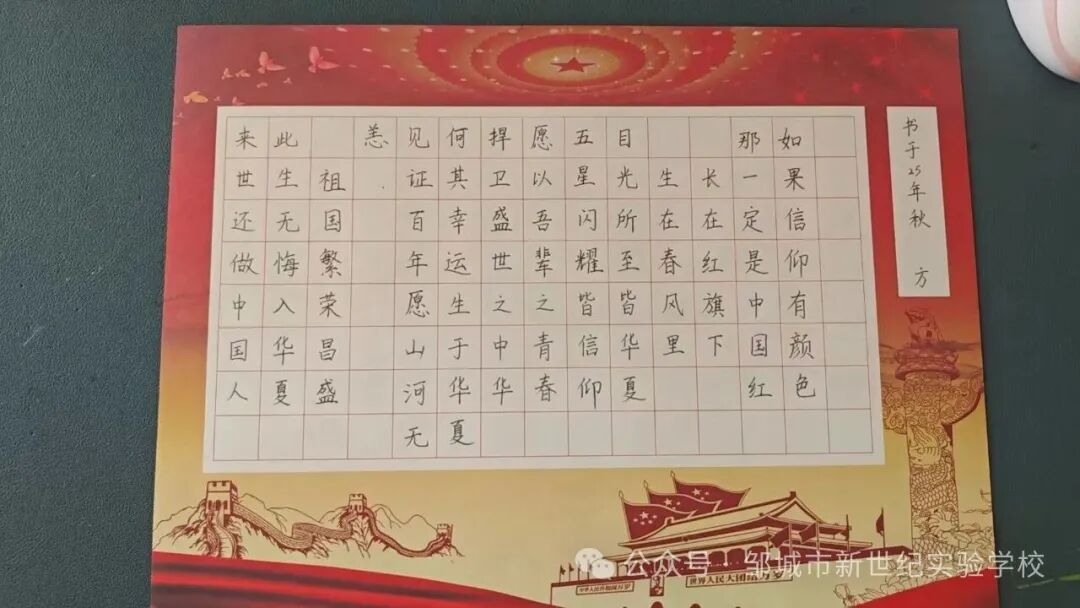 书于25年秋 方
如果信仰有颜色
那一定是中国红
长在红旗下
生在春风里
目光所至皆华夏
五星闪耀皆信仰
愿以吾辈之青春
捍卫盛世之中华
何其幸运生于华夏
见证百年愿山河无
恙
祖国繁荣昌盛
此生无悔入华夏
来世还做中国人
中华人民共和国万岁
世界人民大团结万岁
公众号 · 邹城市新世纪实验学校